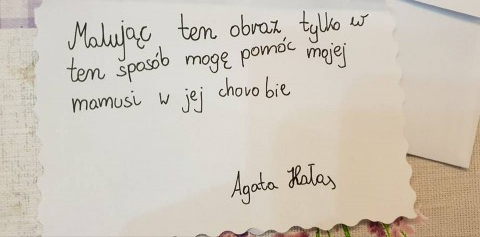 Malując ten obraz tylko w
ten sposób mogę pomóc mojej
mamusi w jej chorobie
Agata Hałas